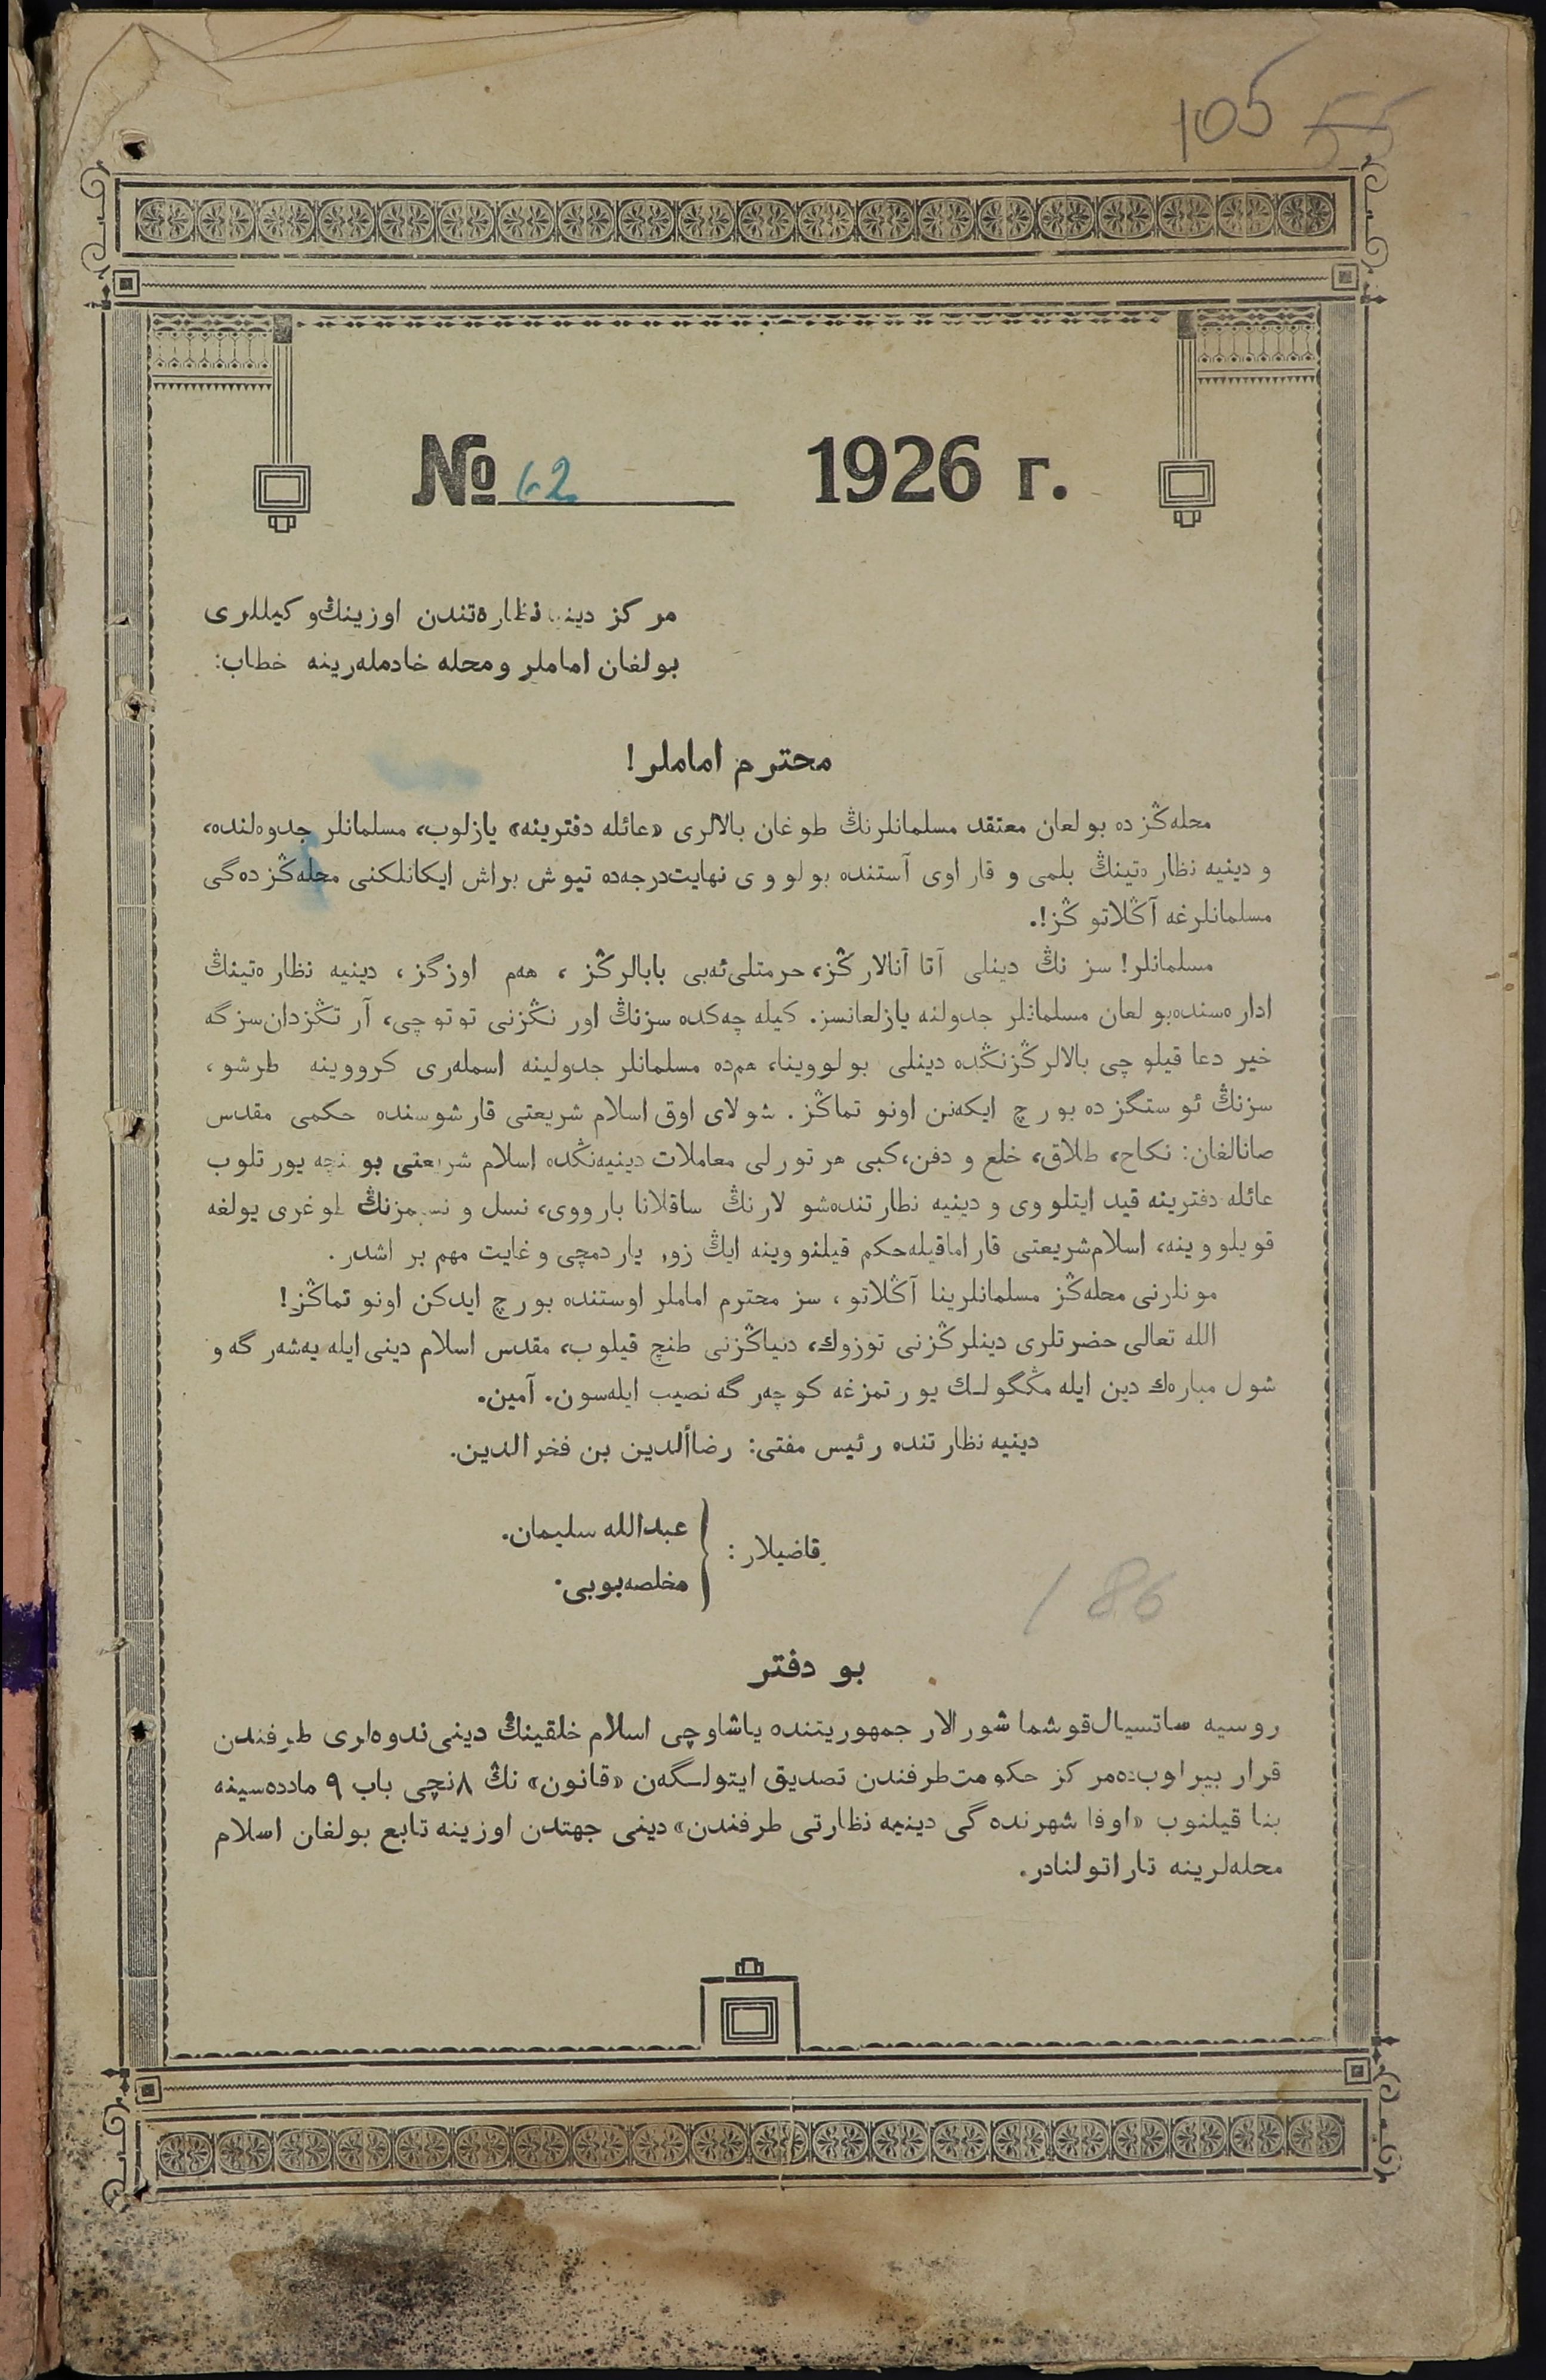 105 55
№ 62 1926 г.
مركز دينيه نظارەتندن اوزينڭ وكيللرى
بولغان اماملر ومحله خادملەرينه خطاب:
محترم اماملر!
محلەڭزدە بولعان معتقد مسلمانلرنڭ طوغان بالالرى «عائله دفترينه» يازلوب، مسلمانلر جدوەلندە،
و دينيه نظارەتينڭ بلمى و قاراوى آستندە بولووى نهايت درجەدە تيوش براش ايكانلكنى محلەڭزدەگى
مسلمانلرغه آڭلاتوڭز!.
مسلمانلر! سزنڭ دينلى آتا آنالارڭز، حرمتلى ئەبى بابالرڭز، هەم اوزگز، دينيه نظارەتينڭ
ادارەسندە بولعان مسلمانلر جدولنه يازلعانسز. كيله چەكدە سزنڭ اورنڭزنى توتوچى، آرتڭزدان سزگه
خير دعا قيلوچى بالالرڭزنڭدە دينلى بولووينا، همدە مسلمانلر جدولينه اسملەرى كرووينه طرشو،
سزنڭ ئوستگزدە بورچ ايكەنن اونوتماڭز. شولاى اوق اسلام شريعتى قارشوسندە حكمى مقدس
صانالغان: نكاح، طلاق، خلع و دفن، كبى هرتورلى معاملات دينيەنڭدە اسلام شريعتى بوينچه يورتلوب
عائله دفترينه قيد ايتلووى و دينيه نظارتندە شولارنڭ ساقلانا بارووى، نسل و نسبمزنڭ طوغرى يولغه
قويلووينه، اسلام شريعتى قاراماقيله حكم قيلنووينه ايڭ زور ياردمچى و غايت مهم بر اشدر.
مونلرنى محلەڭز مسلمانلرينا آڭلاتو، سز محترم اماملر اوستندە بورچ ايدكن اونوتماڭز!
الله تعالى حضرتلرى دينلرڭزنى توزوك، دنياڭزنى طنچ قيلوب، مقدس اسلام دينى ايله يەشەرگه و
شول مبارەك دين ايله مڭگولك يورتمزغه كوچەرگه نصيب ايلەسون. آمين.
دينيه نظارتندە رئيس مفتى: رضاألدين بن فخرالدين.
قاضيلار: عبدالله سليمان.
مخلصه بوبى.
186
بو دفتر
روسيه ساتسيال قوشما شورالار جمهوريتندە ياشاوچى اسلام خلقينڭ دينى ندوەلرى طرفندن
قرار بيراوب دە مركز حكومت طرفندن تصديق ايتولگەن «قانون» نڭ ٨نچى باب ٩ ماددەسينه
بنا قيلنوب «اوفا شهرندەگى دينيه نظارتى طرفندن» دينى جهتدن اوزينه تابع بولغان اسلام
محلەلرينه تاراتولنادر.